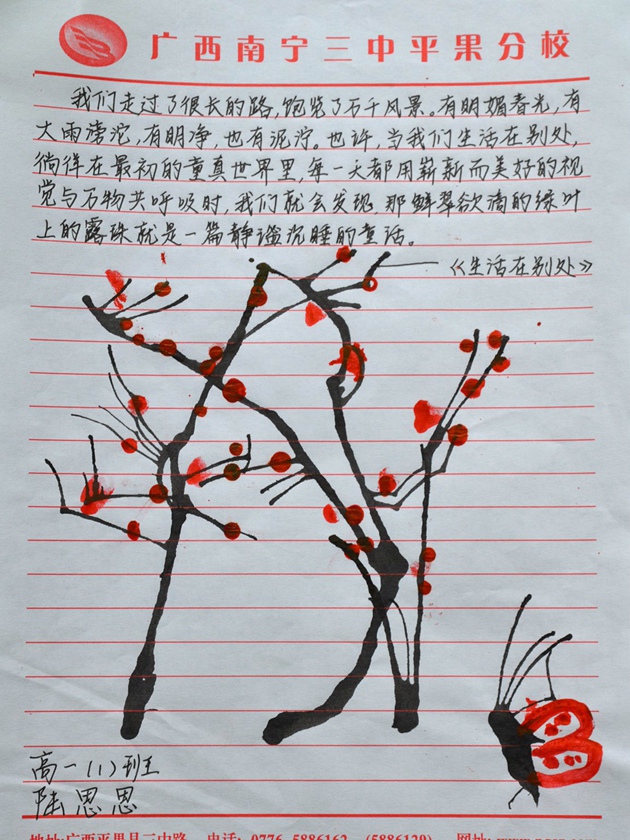 广西南宁三中平果分校
我们走过了很长的路,饱览了万千风景。有明媚春光,有
大雨滂沱,有明净,也有泥泞。也许,当我们生活在别处,
徜徉在最初的童真世界里,每一天都用崭新而美好的视
觉与万物共呼吸时,我们就会发现 那鲜翠欲滴的绿叶
上的露珠就是一篇静谧沉睡的童话。
《生活在别处》
高一(1)班
陆思恩
地址:广西平果县三中路 电话: 0776-5886162 (5886129) 网址: